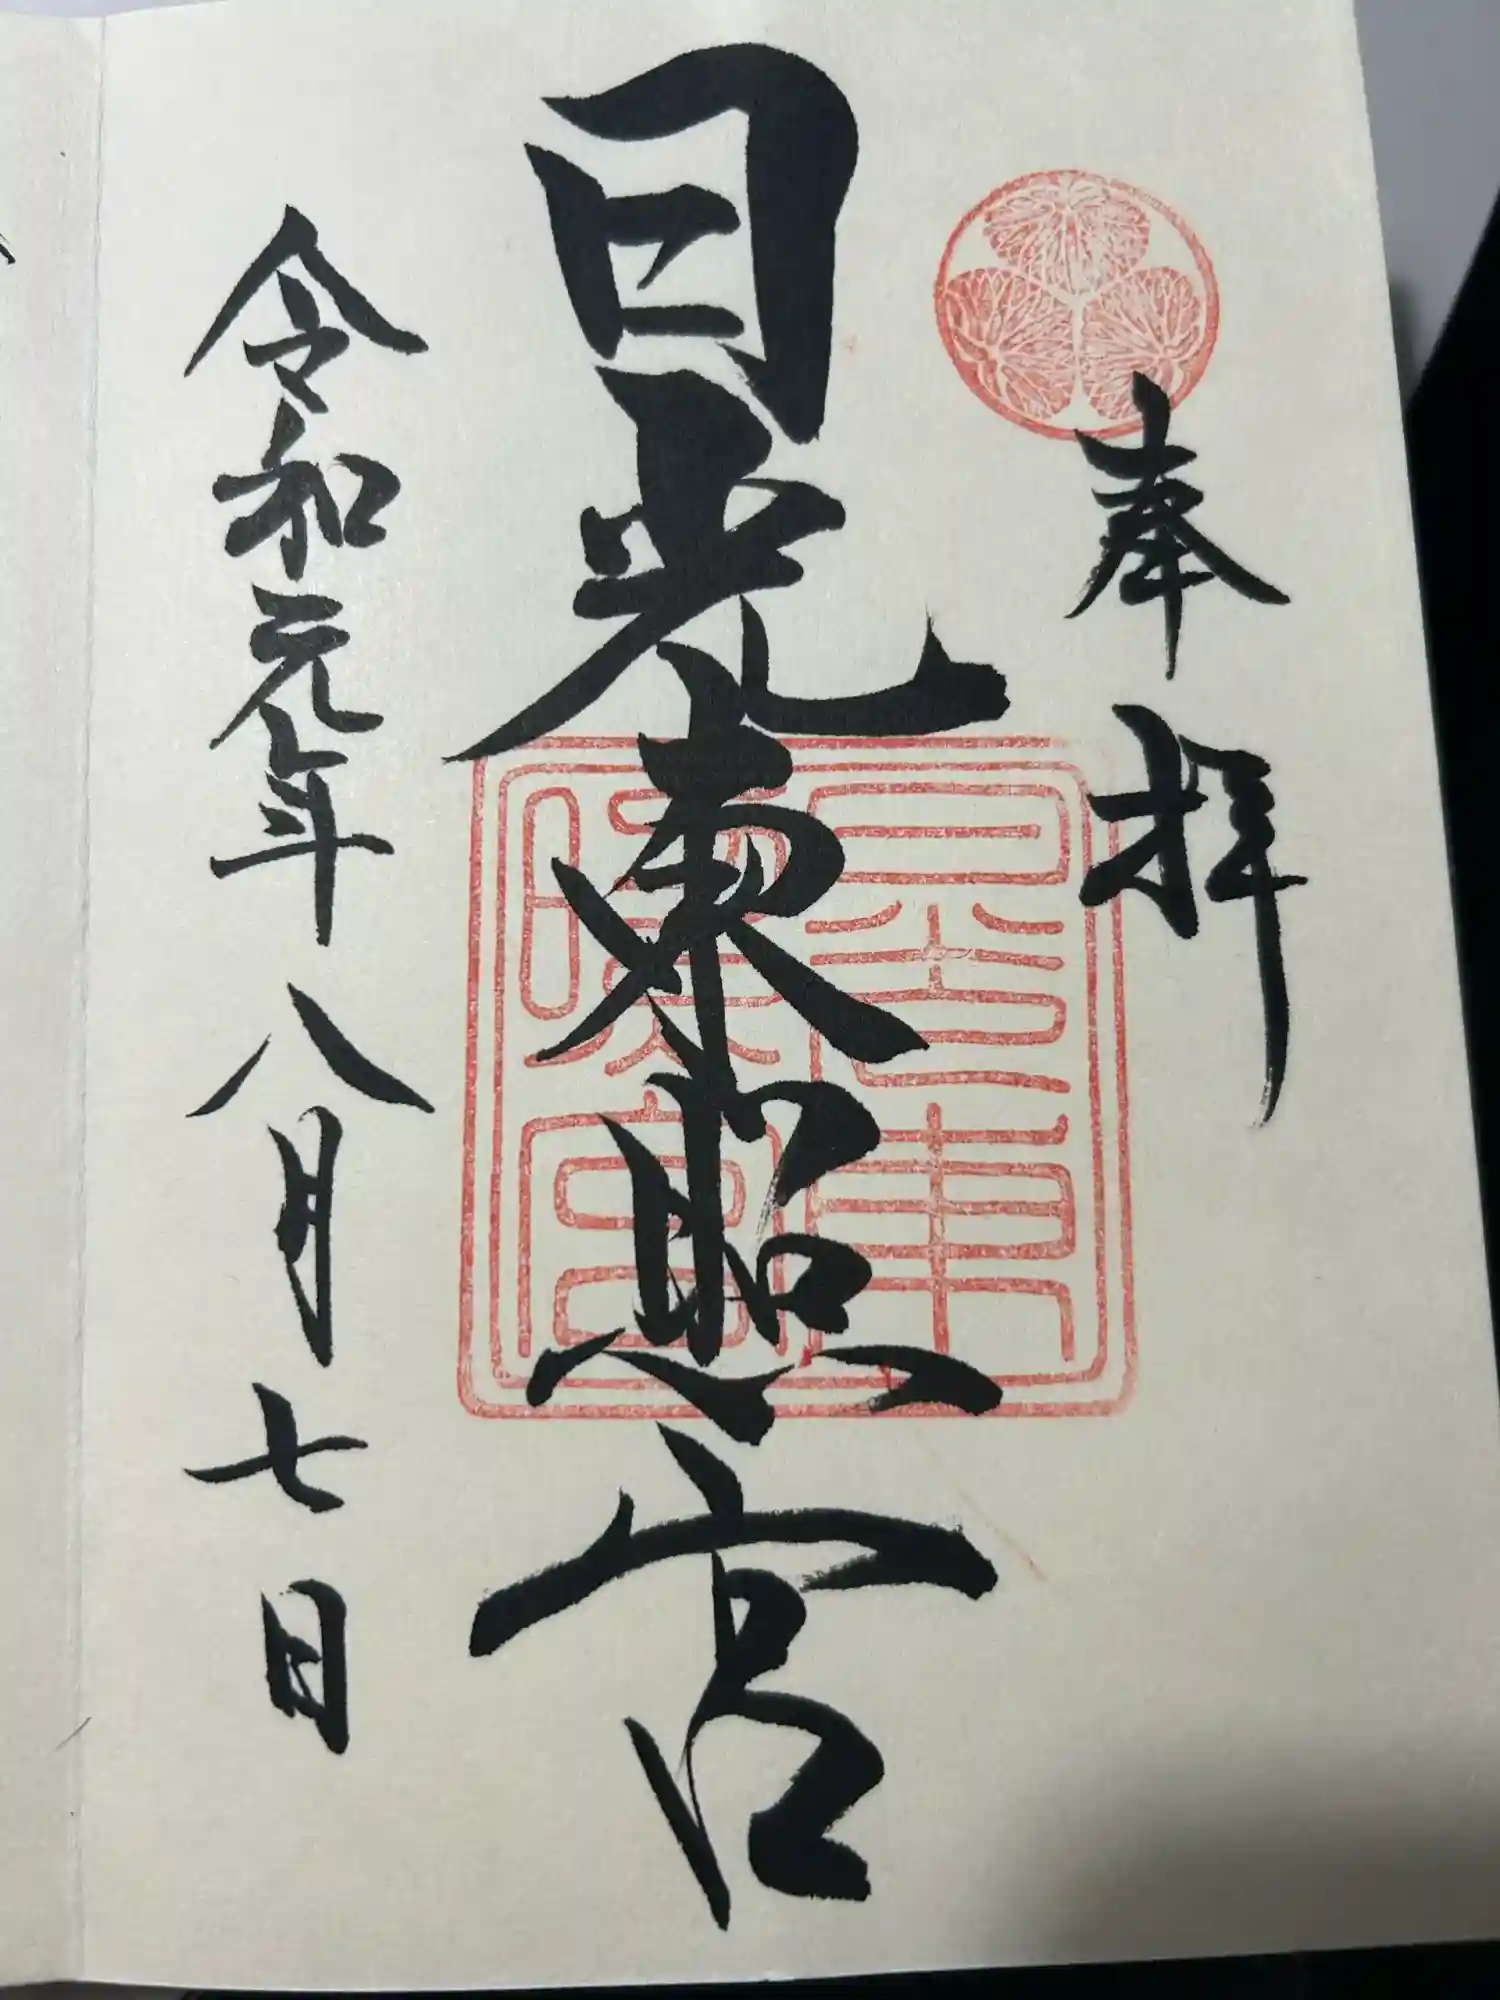 奉拝
日光東照宮
令和元年八月七日
日光東照宮